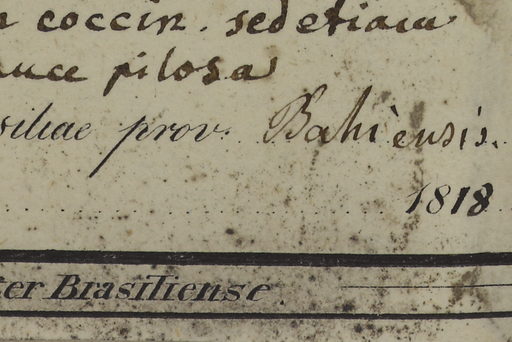 coccin. sed etiam
pilosa
siliae prov. Bahiensis.
1818
ter Brasiliense